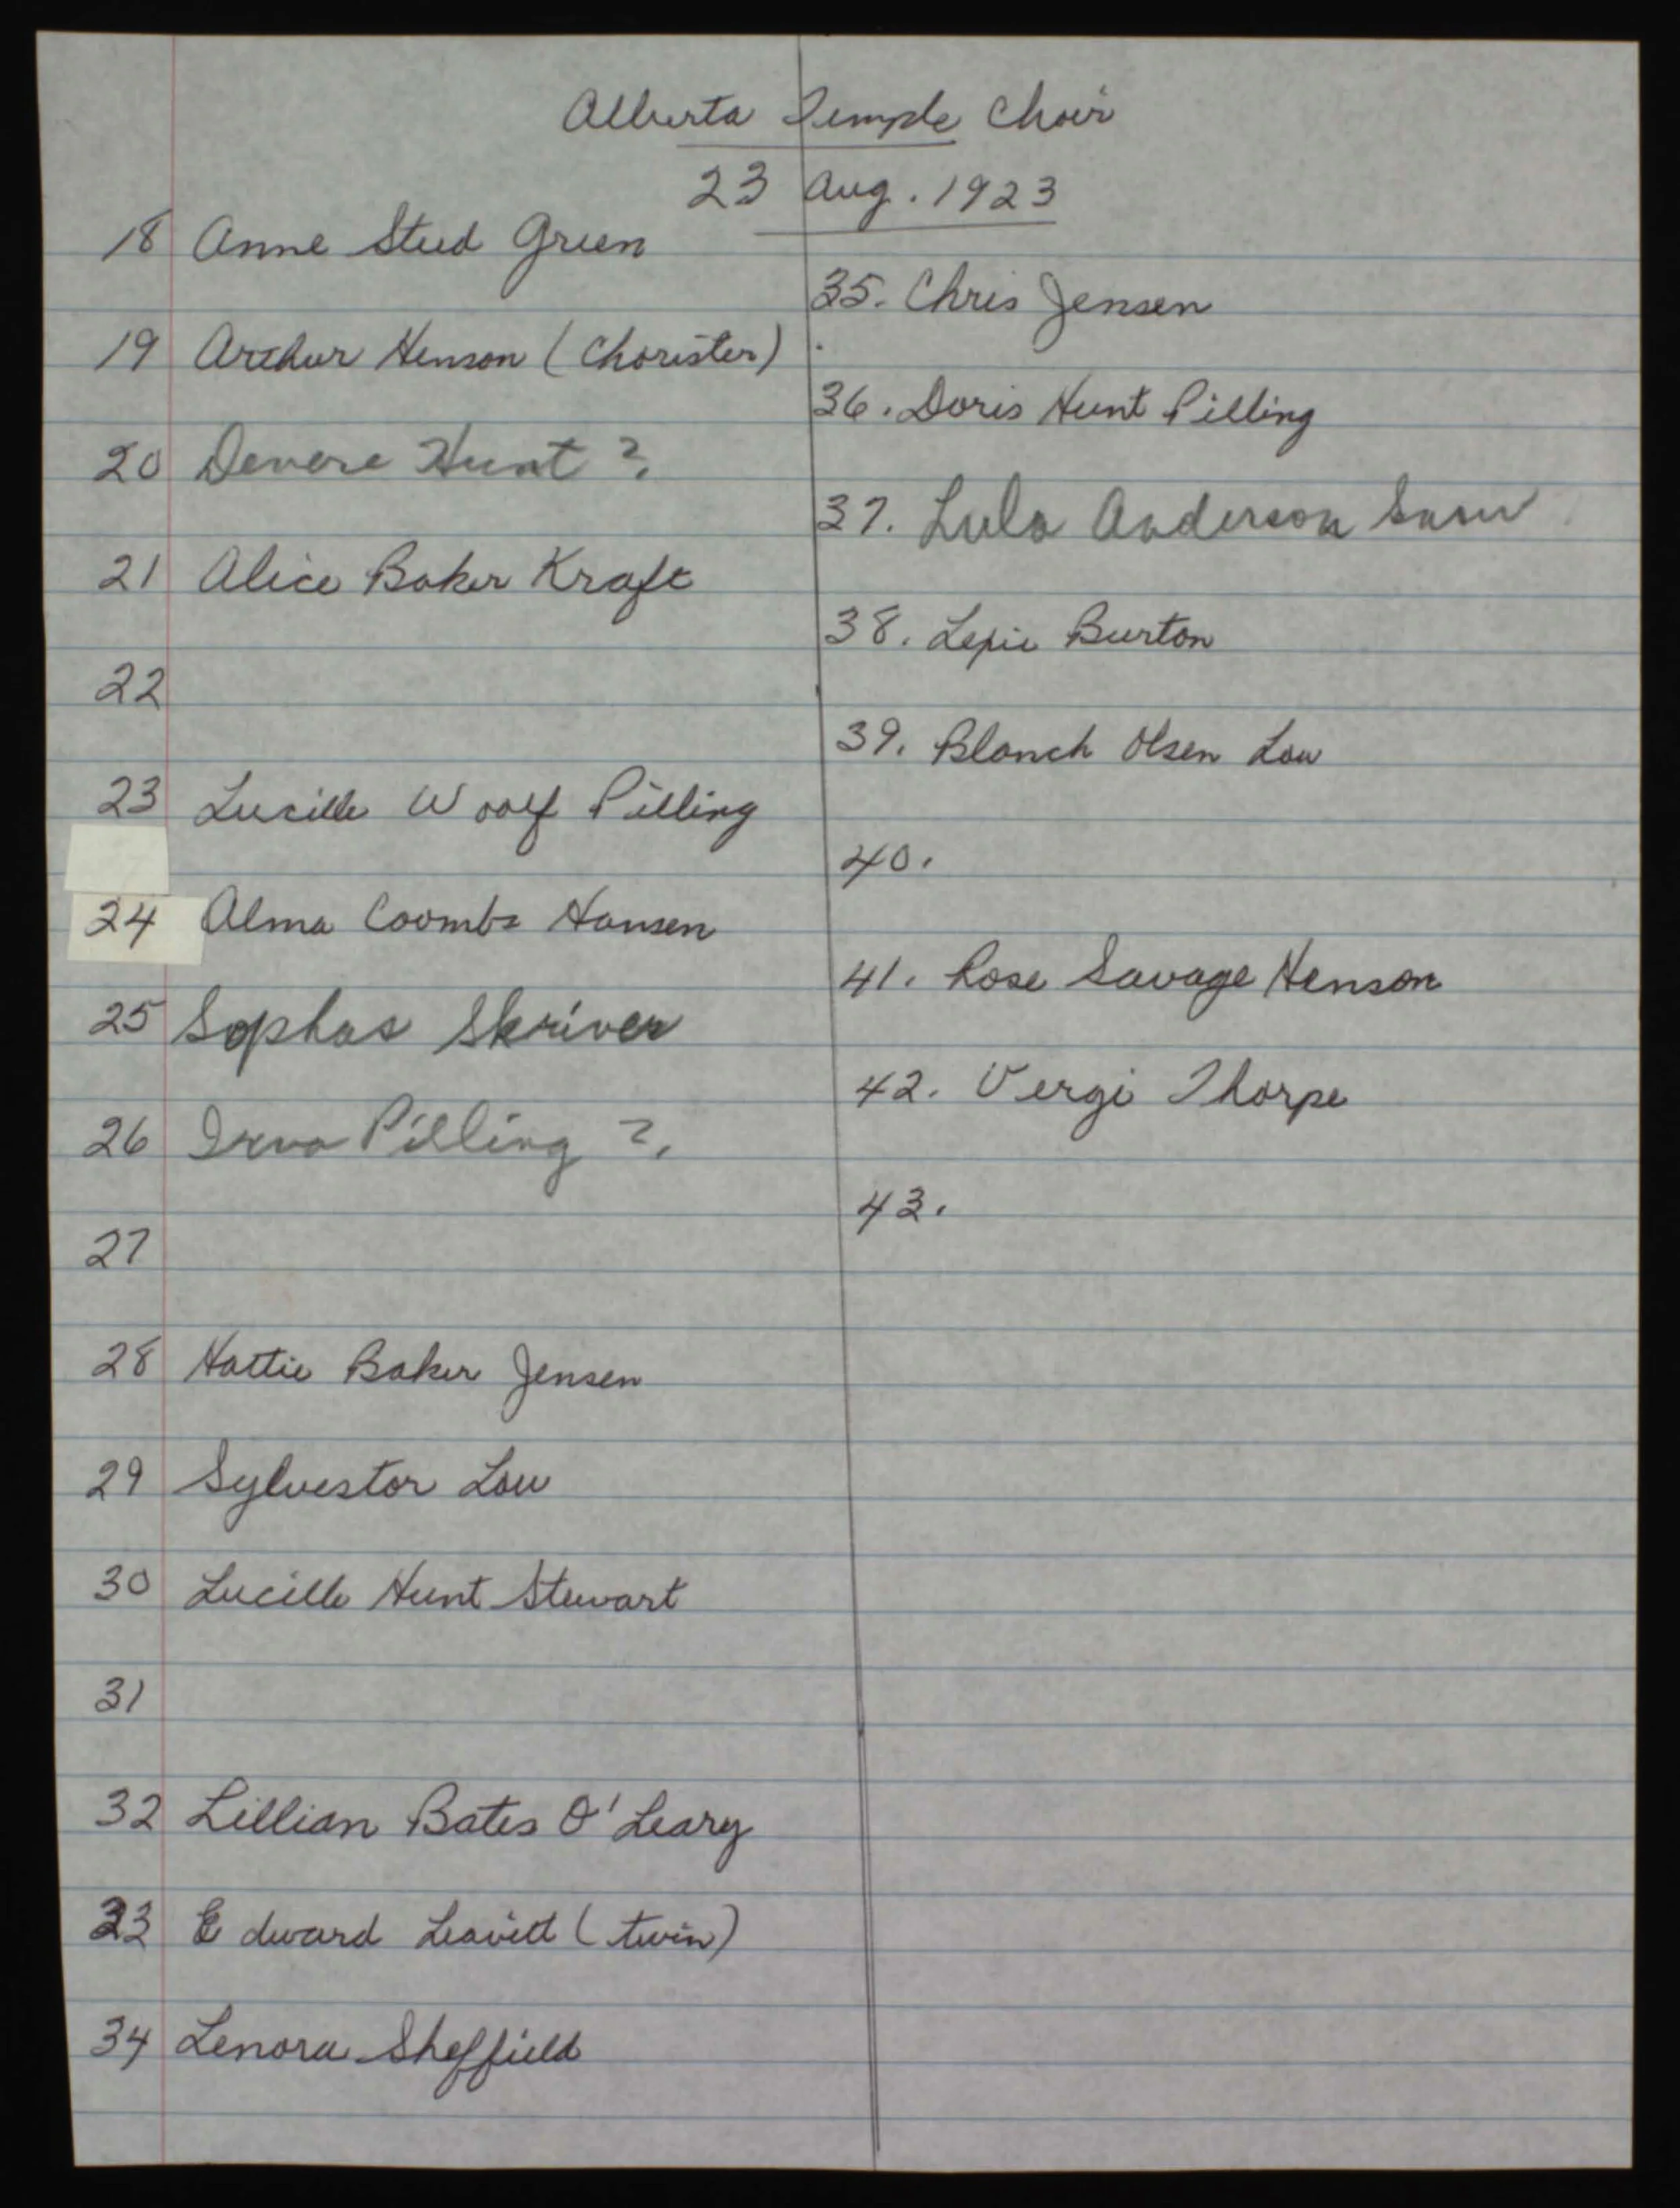 Alberta Temple Choir
23 Aug. 1923
18 Anne Steed Green
19 Arthur Henson (Chorister)
20 Devere Hunt ?
21 Alice Baker Kraft
22
23 Lucille Woolf Pilling
24 Alma Coombs Hansen
25 Sophus Skriver
26 Irva Pilling ?
27
28 Hattie Baker Jensen
29 Sylvestor Low
30 Lucille Hunt Stewart
31
32 Lillian Bates O'Leary
33 Edward Leavitt (twin)
34 Lenora Sheffield
35. Chris Jensen
36. Doris Hunt Pilling
37. Lula Anderson Snow
38. Lexie Burton
39. Blanch Olsen Low
40.
41. Rose Savage Henson
42. Vergi Thorpe
43.